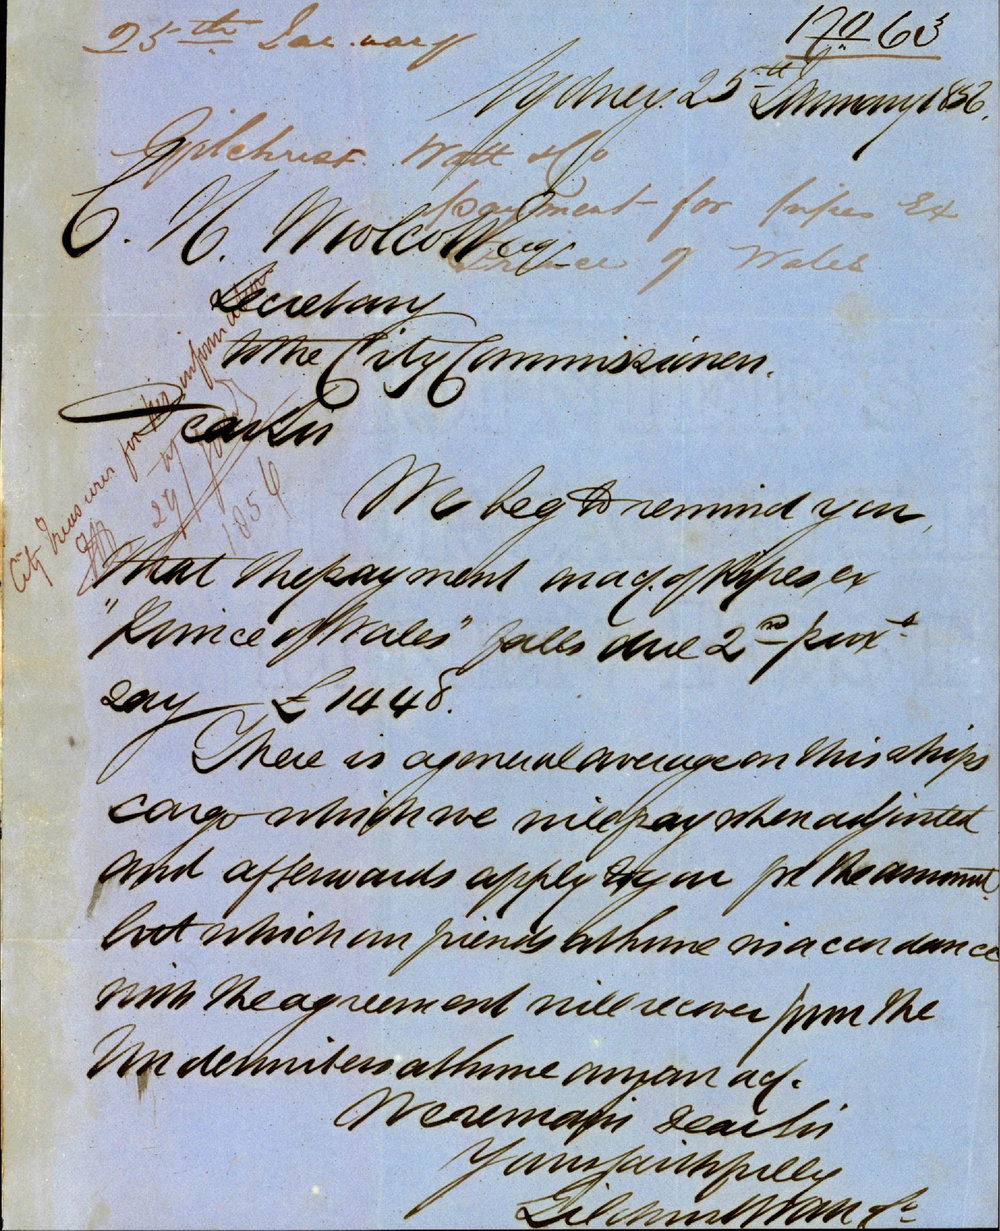 25th January
Sydney 25th January 1856.
Gilchrist Watt & Co
payment for pipes Ex
Prince of Wales
C. H. Woolcott Esq
Secretary
to the City Commissioners.
City Treasurer for his information
29/Jan
1856
Dear Sir
We beg to remind you,
that the payment on a/c. of Pipes ex
"Prince of Wales" falls due 2nd proxo
say £1448.
There is a general average on this ships
cargo which we will pay when adjusted
and afterwards apply to you for the amount,
but which our friends at home in accordance
with the agreement will recover from the
Underwriters at home on your a/c.
We remain Dear Sir
Yours faithfully
Gilchrist Watt & Co